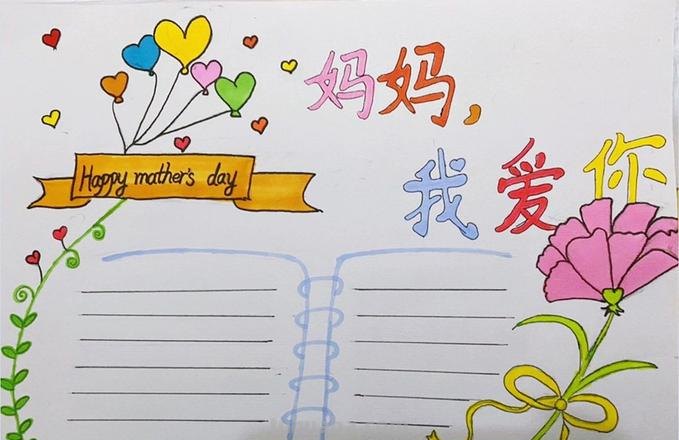 Happy mather's day
妈妈,
我爱你